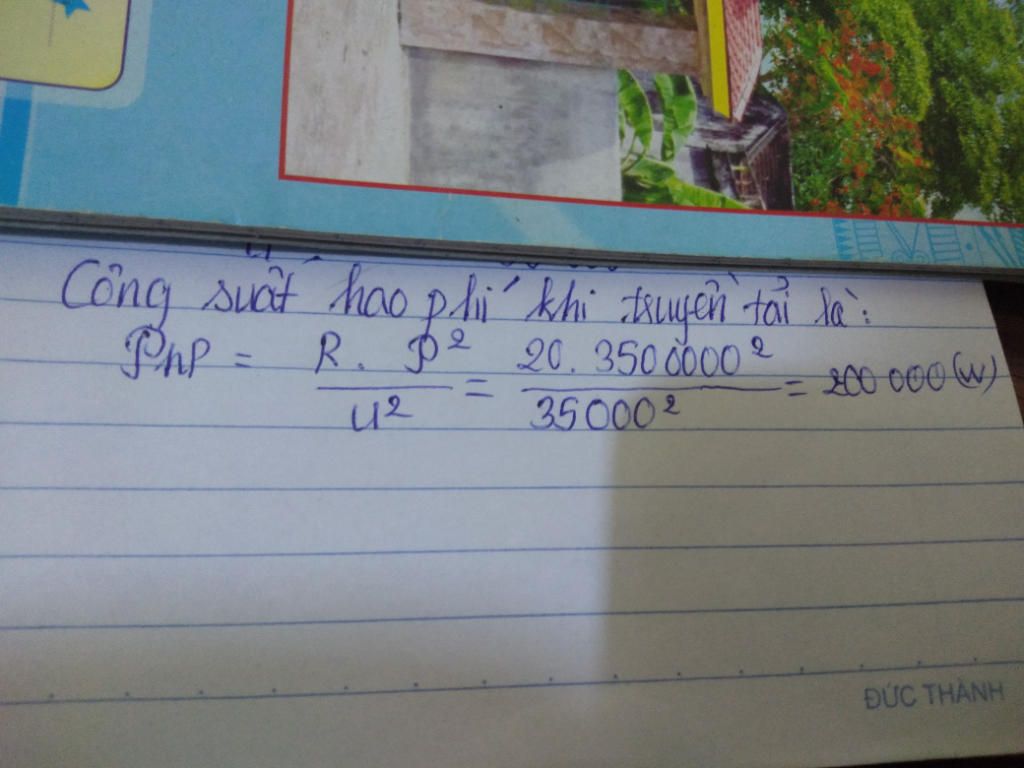 Công suất hao phí khi truyền tải là:
Php = R. P² / U² = 20. 3500000² / 35000² = 200 000 (W)
ĐỨC THÀNH